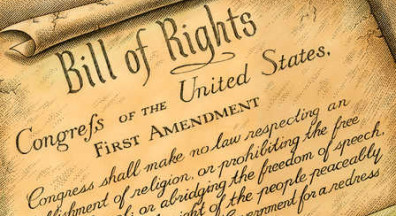 Bill of Rights
Congreſs OF THE United States,
FIRST AMENDMENT
Congress shall make no law respecting an
lishment of religion, or prohibiting the free
or abridging the freedom of speech,
ght of the people peaceably
Government for a redress